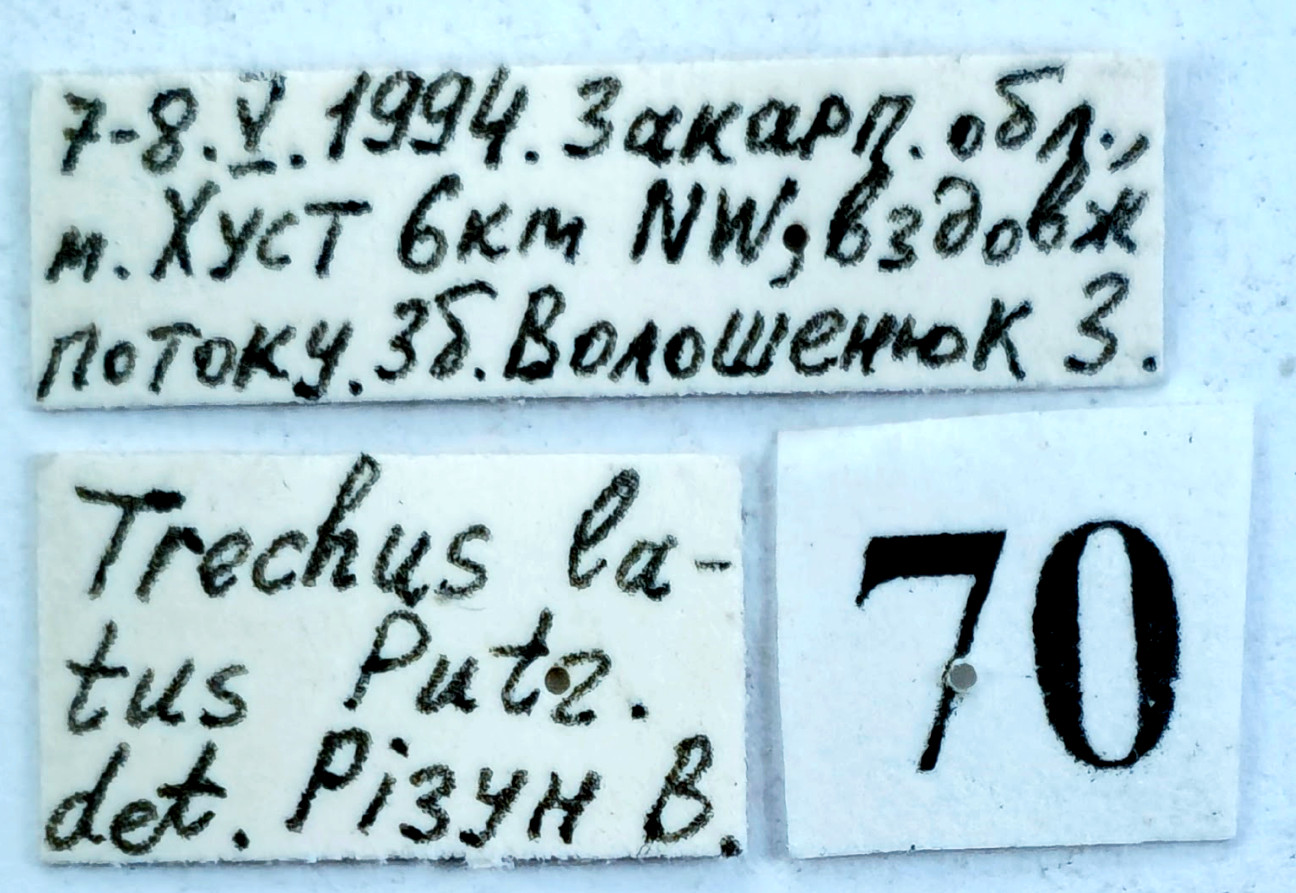 7-8.V.1994. Закарп. обл.,
м. Хуст 6км NW; вздовж
потоку. Зб. Волошенюк З.
Trechus la-
tus Putz.
det. Різун В.
70